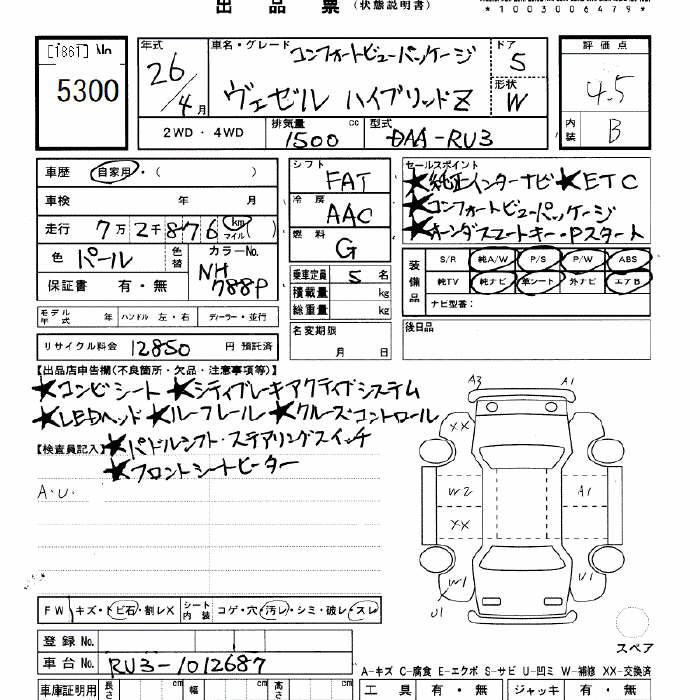 出品票 (状態説明書)
*1003006479*
[1861] No
5300
年式 26/4月
車名・グレード コンフォートビューパッケージ
ヴェゼル ハイブリッドZ
ドア 5
形状 W
評価点 4.5
内装 B
2WD・4WD
排気量 1500 cc
型式 DAA-RU3
車歴 自家用・( )
車検 年 月
走行 7万2千876 km (マイル)
色 パール 色替
カラーNo. NH788P
保証書 有・無
シフト FAT
冷房 AAC
燃料 G
乗車定員 5 名
積載量 kg
総重量 kg
名変期限 月 日
セールスポイント
★純正インターナビ ★ETC
★コンフォートビューパッケージ
★ホンダスマートキー・Pスタート
装備品
S/R 純A/W P/S P/W ABS
純TV 純ナビ 革シート 外ナビ エアB
ナビ型番:
後日品
モデル年式 年 ハンドル 左・右 ディーラー・並行
リサイクル料金 12850 円 預託済
【出品店申告欄(不良箇所・欠品・注意事項等)】
★コンビシート ★シティブレーキアクティブシステム
★LEDヘッド ★ルーフレール ★クルーズコントロール
【検査員記入】★パドルシフト・ステアリングスイッチ
★フロントシートヒーター
A.U.
A3 A1
XX
W2 A1
XX
W1 W1
U1
スペア
FW キズ・トビ石・割レX シート内装 コゲ・穴・汚レ・シミ・破レ・スレ
登録No.
車台No. RU3-1012687
A-キズ C-腐食 E-エクボ S-サビ U-凹ミ W-補修 XX-交換済
車庫証明用 長さ cm 幅 cm 高さ cm 工具 有・無 ジャッキ 有・無